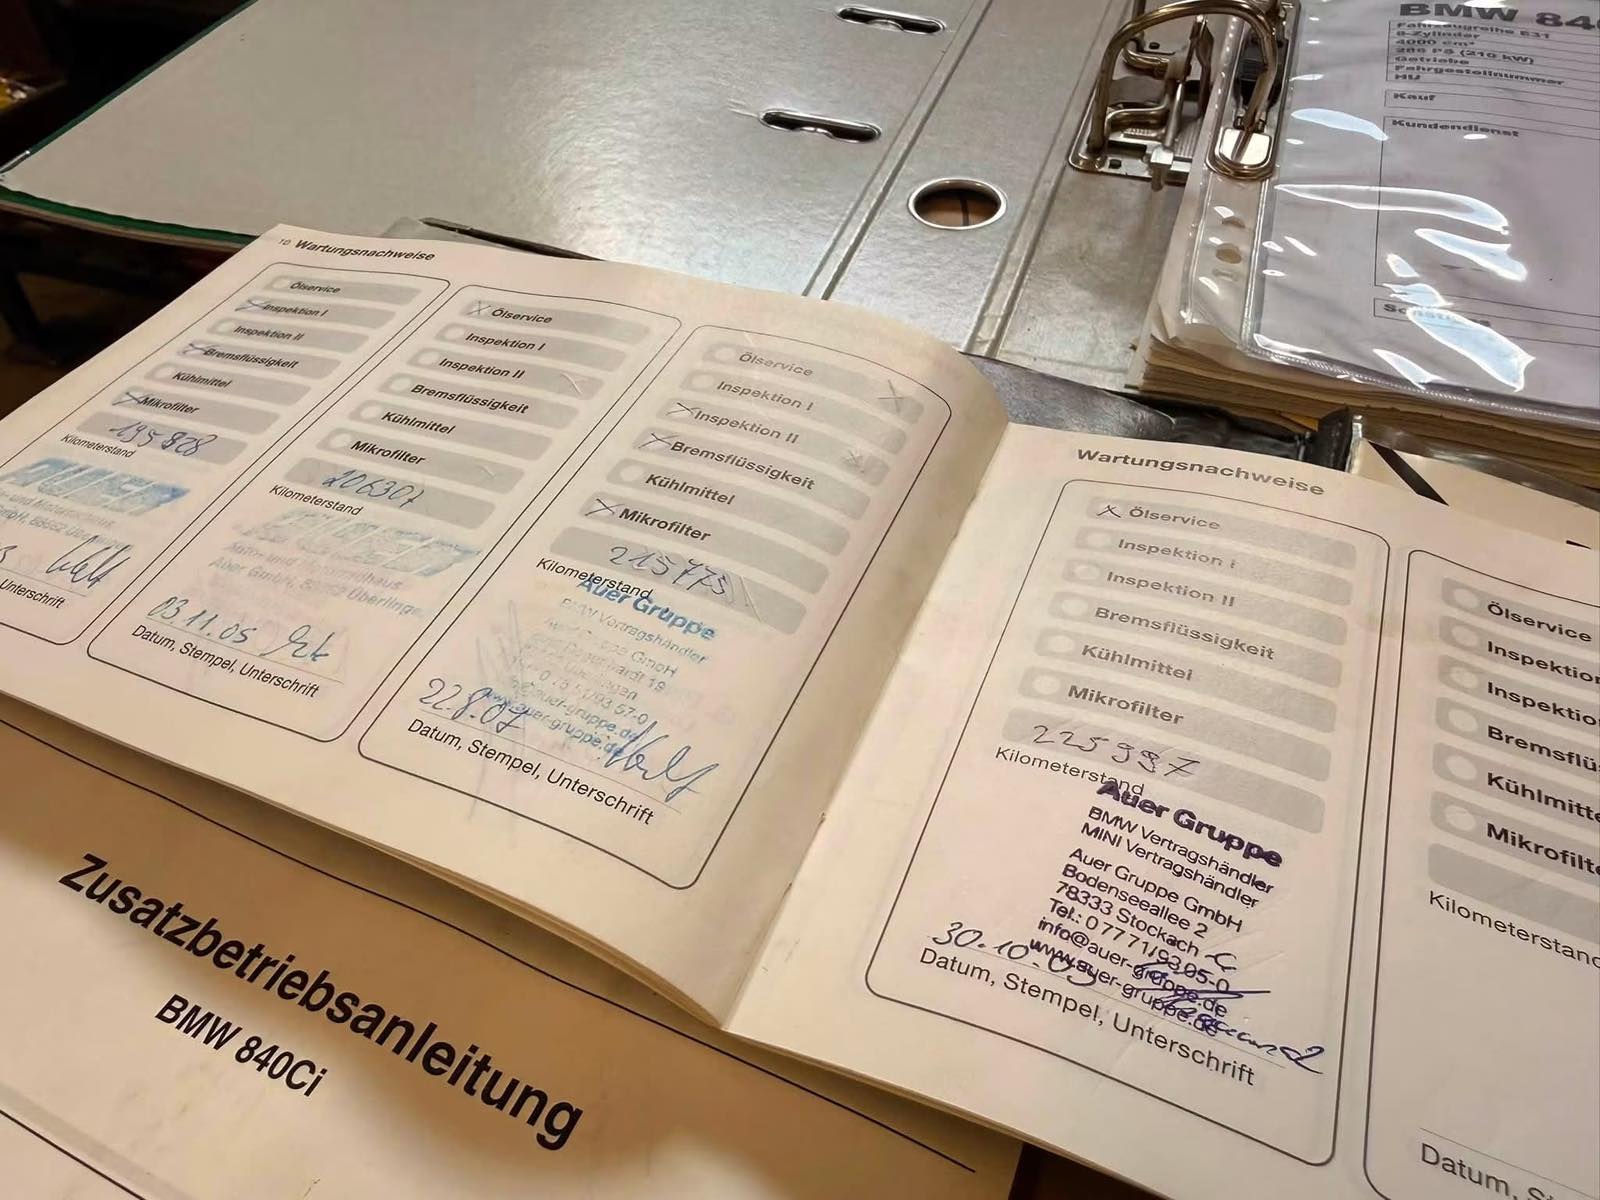 BMW 840
Fahrzeugreihe E31
8-Zylinder
4000 cm³
286 PS (210 kW)
Getriebe
Fahrgestellnummer
HU
Kauf
Kundendienst
10 Wartungsnachweise
Ölservice
Inspektion I
Inspektion II
Bremsflüssigkeit
Kühlmittel
Mikrofilter
195828
Kilometerstand
Unterschrift
Ölservice
Inspektion I
Inspektion II
Bremsflüssigkeit
Kühlmittel
Mikrofilter
206307
Kilometerstand
Auer GmbH, 88662 Überlinge
03.11.05
Datum, Stempel, Unterschrift
Ölservice
Inspektion I
Inspektion II
Bremsflüssigkeit
Kühlmittel
Mikrofilter
215773
Kilometerstand
Auer Gruppe
BMW Vertragshändler
22.8.07
Datum, Stempel, Unterschrift
Wartungsnachweise
Ölservice
Inspektion I
Inspektion II
Bremsflüssigkeit
Kühlmittel
Mikrofilter
225997
Kilometerstand
Auer Gruppe
BMW Vertragshändler
MINI Vertragshändler
Auer Gruppe GmbH
Bodenseeallee 2
78333 Stockach
Tel.: 0 77 71/93 05-0
info@auer-gruppe.de
www.auer-gruppe.de
30.10.09
Datum, Stempel, Unterschrift
Ölservice
Inspektio
Inspektio
Bremsflüs
Kühlmitte
Mikrofilte
Kilometerstand
Datum, S
Zusatzbetriebsanleitung
BMW 840Ci